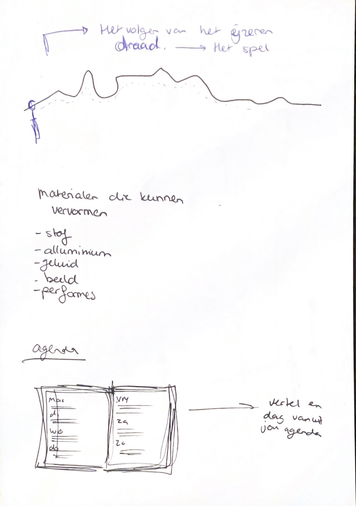 Het volgen van het ijzeren
draad. → Het spel
materialen die kunnen
vervormen
- stof
- alluminium
- geluid
- beeld
- performes
agenda
Ma
di
wo
do
Vrij
za
zo
→ vertel en
dag vanuit
jou agenda